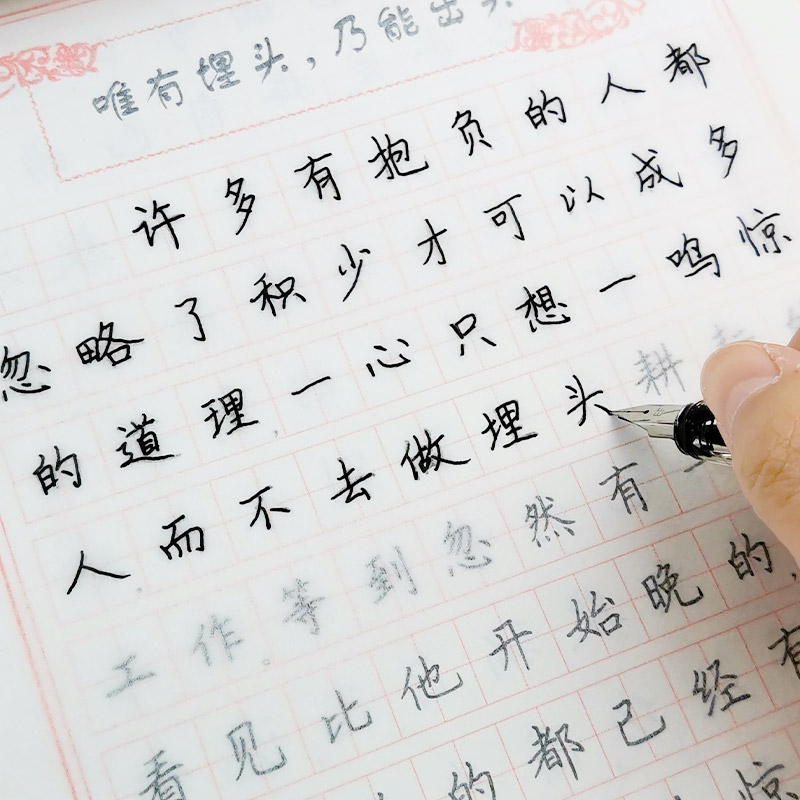 唯有埋头，乃能出头
许多有抱负的人都
忽略了积少才可以成多
的道理一心只想一鸣惊
人而不去做埋头耕
工作.等到忽然有
看见比他开始晚的
的都已经有
惊